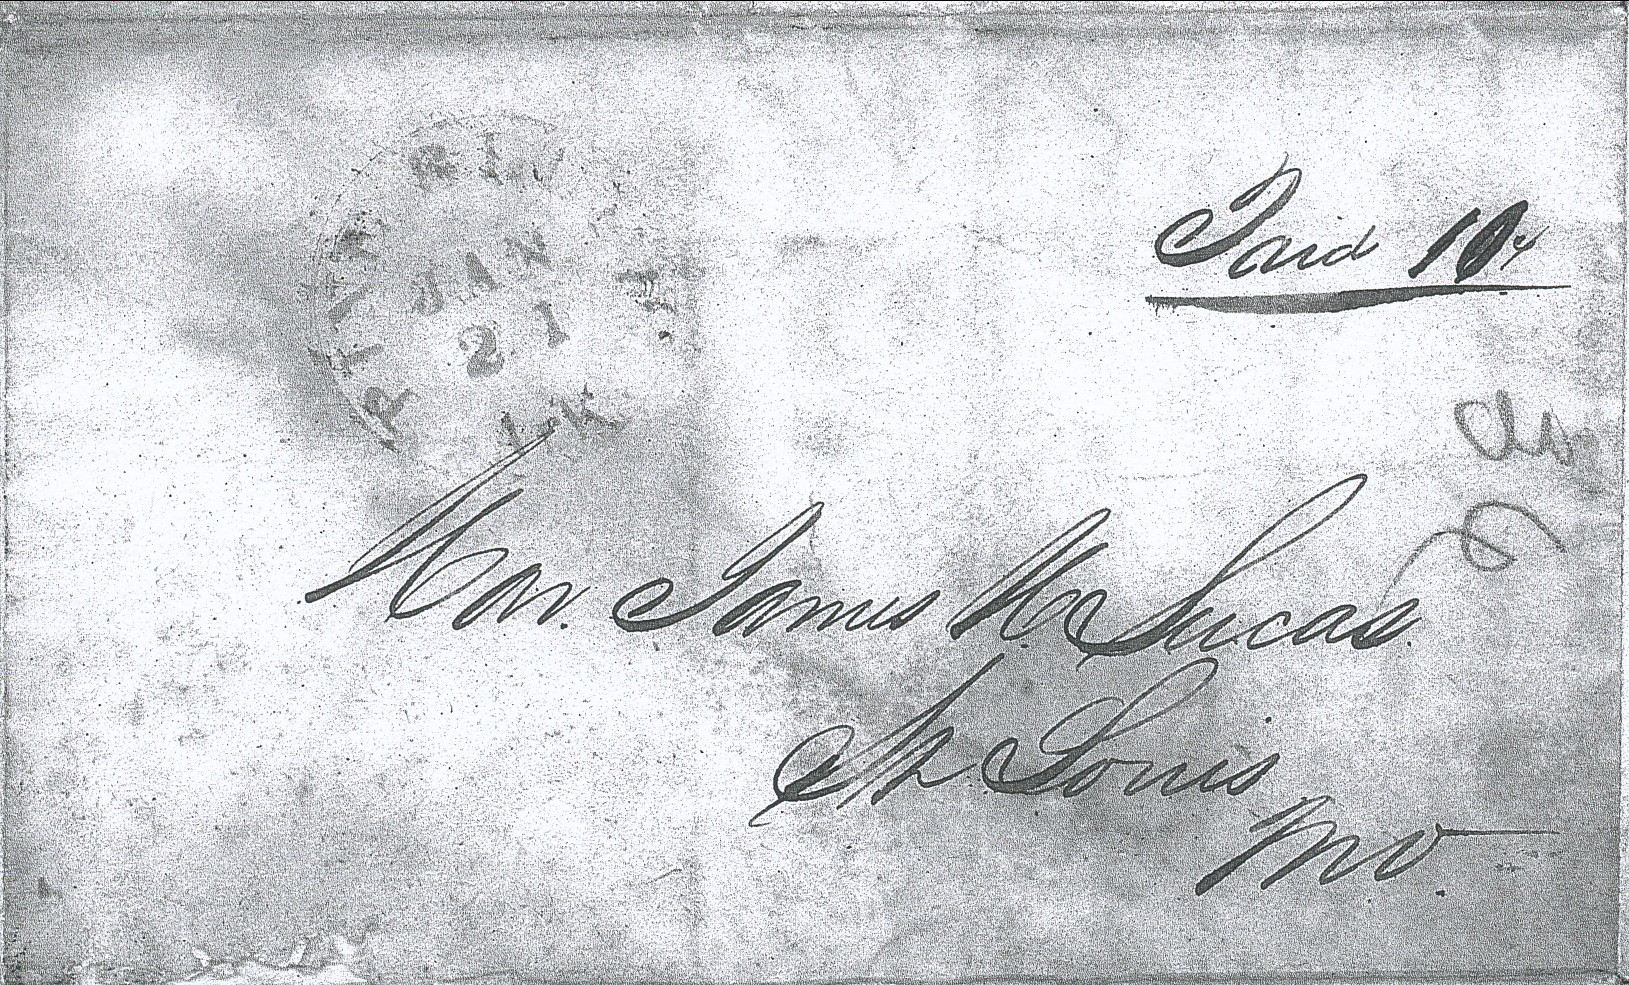 JAN
21
Paid 10
Hon. James H Lucas.
St Louis
Mo.